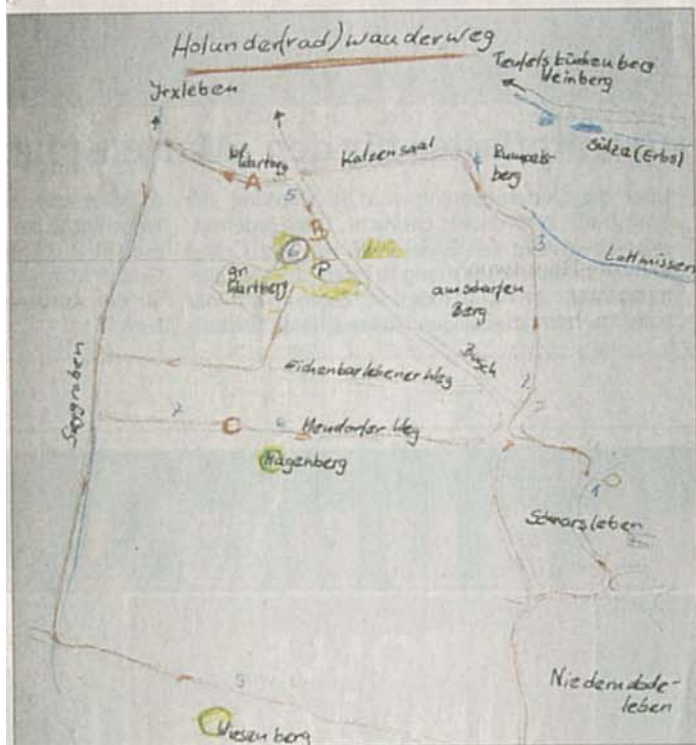 Holunder(rad)wanderweg
Teufelsküchenberg
Weinberg
Irxleben
Sülze (Erbs)
kl. Wartberg
Katzensaal
Rumpels-
berg
A
5
B
3
6
P
gr.
Wartberg
am scharfen
Berg
Busch
Eichenbarlebener Weg
2
7
C
Hagenberg
1
Schnarsleben
Niederndode-
leben
Wiesenberg